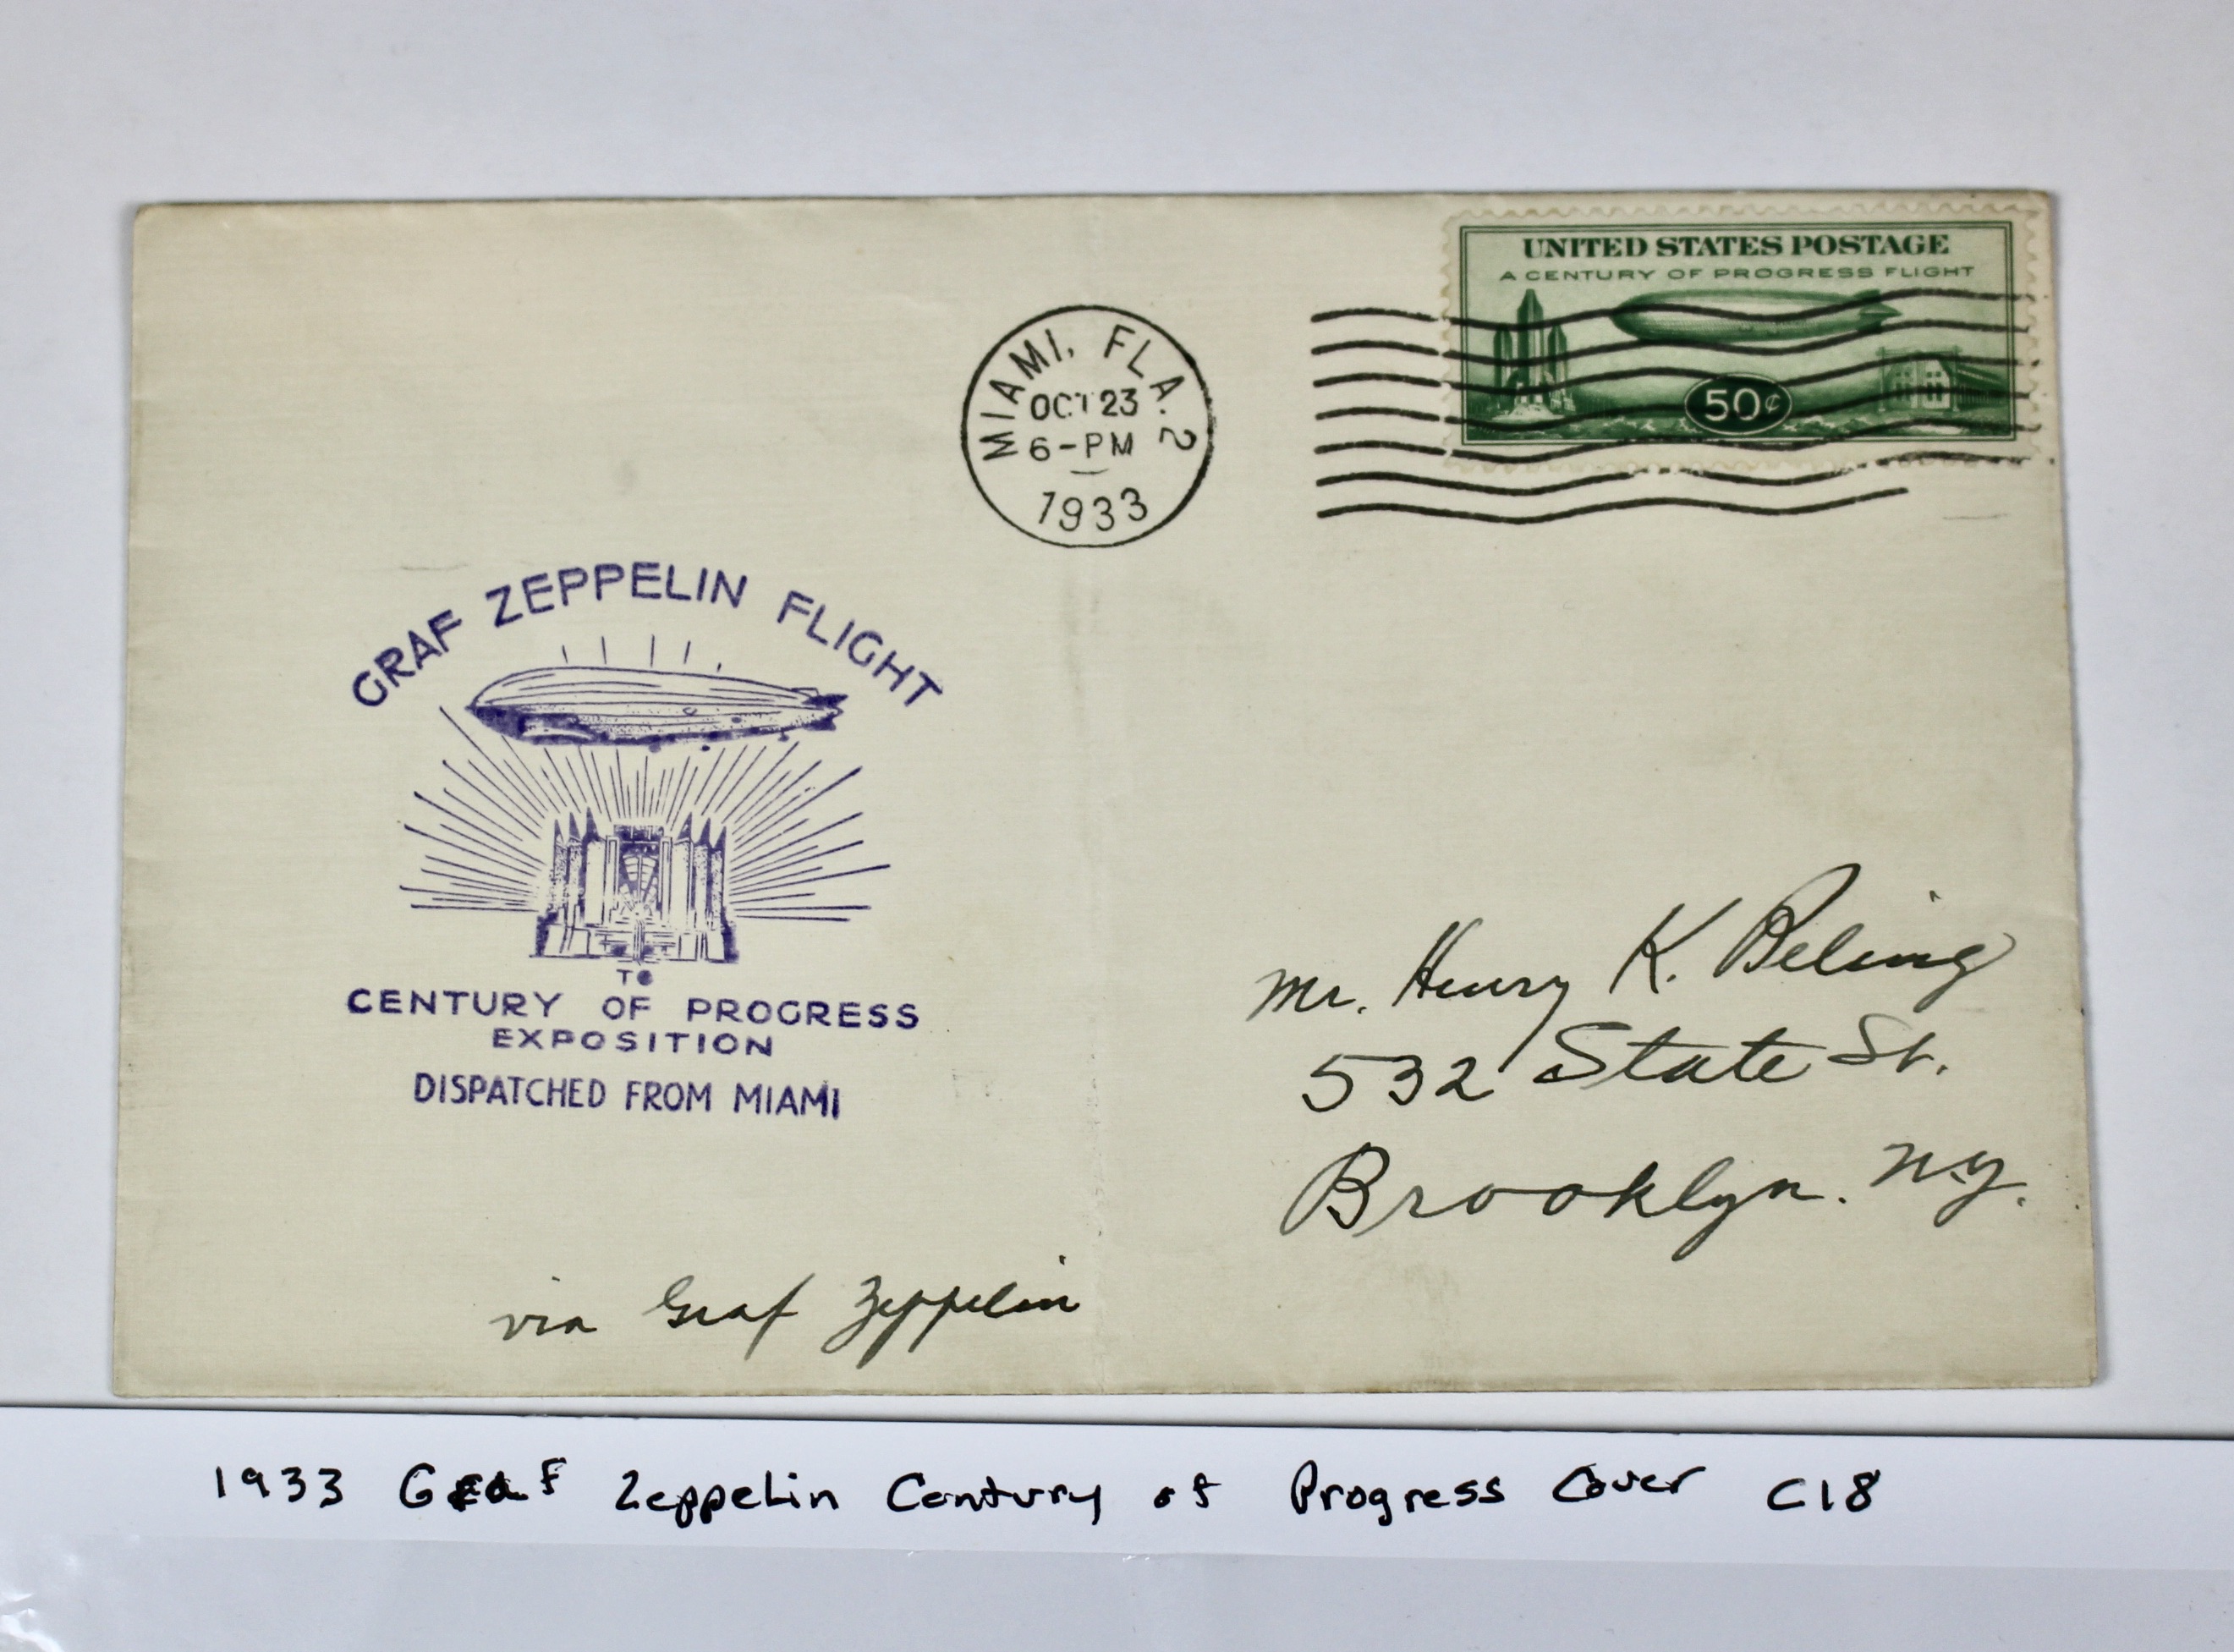 UNITED STATES POSTAGE
A CENTURY OF PROGRESS FLIGHT
50¢
MIAMI, FLA. 2
OCT 23
6-PM
1933
GRAF ZEPPELIN FLIGHT
TO
CENTURY OF PROGRESS
EXPOSITION
DISPATCHED FROM MIAMI
Mr. Henry K. Beling
532 State St.
Brooklyn. N.Y.
via Graf Zeppelin
1933 Graf Zeppelin Century of Progress Cover C18